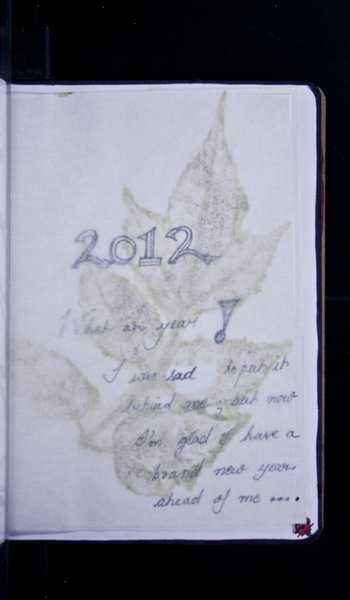 2012
What an year !
I was sad to put it
behind me ; but now
I'm glad I have a
brand new year
ahead of me ....